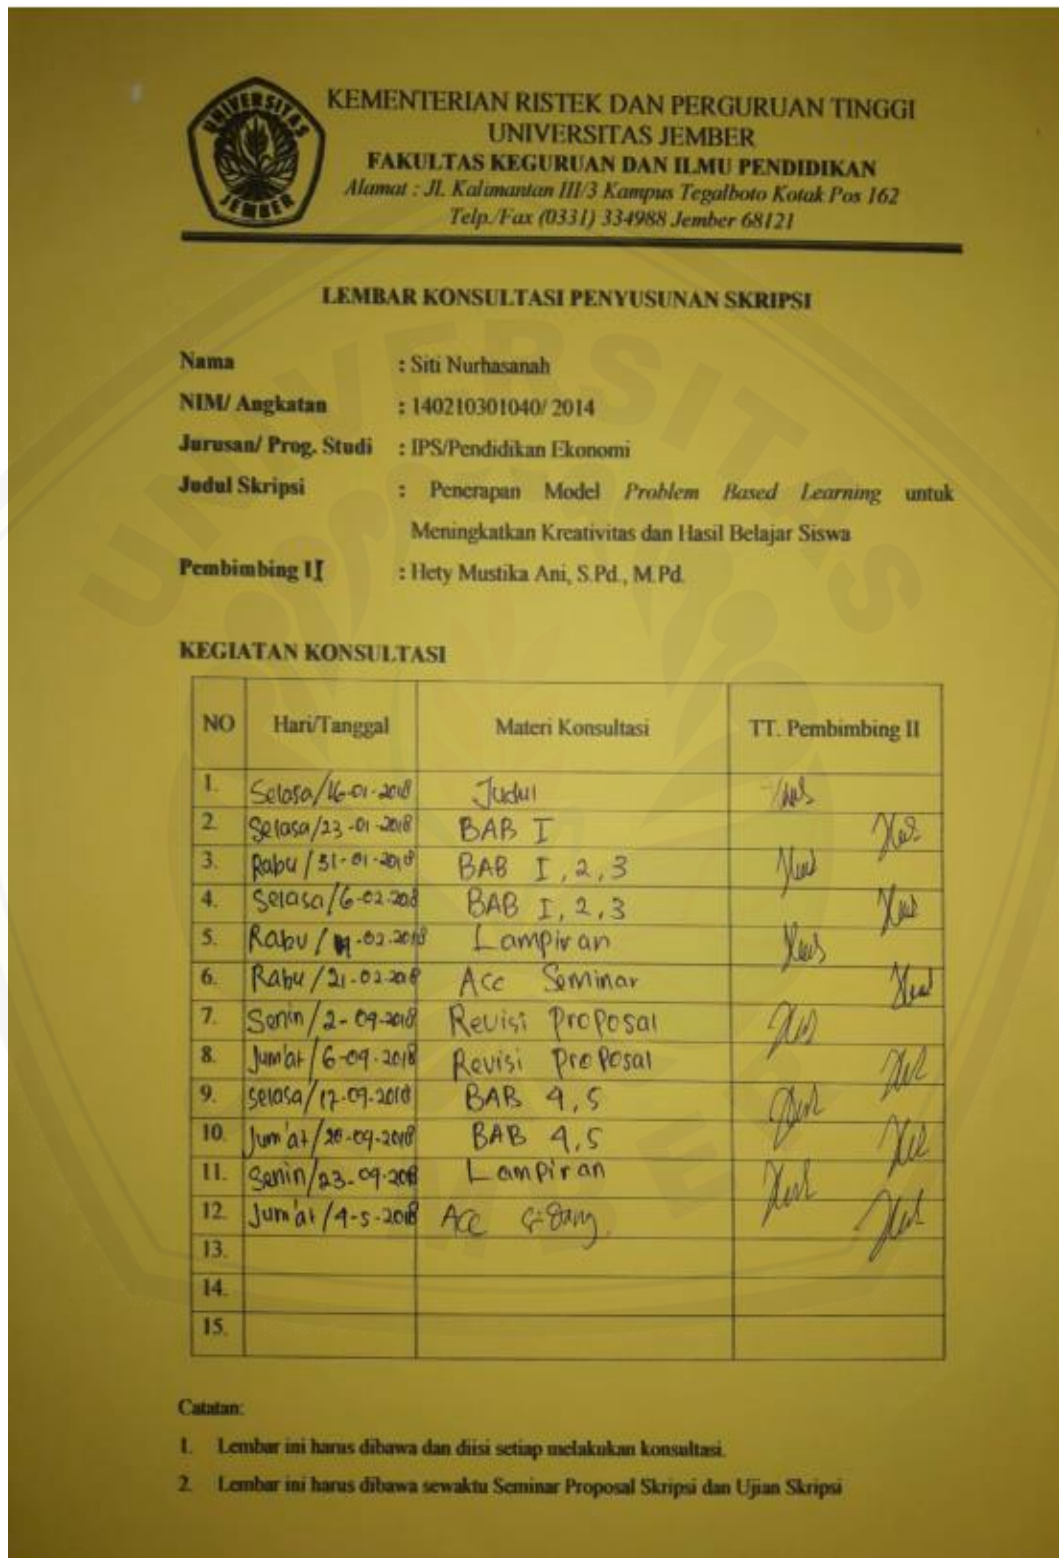 UNIVERSITAS
JEMBER
KEMENTERIAN RISTEK DAN PERGURUAN TINGGI
UNIVERSITAS JEMBER
FAKULTAS KEGURUAN DAN ILMU PENDIDIKAN
Alamat : Jl. Kalimantan III/3 Kampus Tegalboto Kotak Pos 162
Telp./Fax (0331) 334988 Jember 68121
LEMBAR KONSULTASI PENYUSUNAN SKRIPSI
Nama : Siti Nurhasanah
NIM/ Angkatan : 140210301040/ 2014
Jurusan/ Prog. Studi : IPS/Pendidikan Ekonomi
Judul Skripsi : Penerapan Model Problem Based Learning untuk
Meningkatkan Kreativitas dan Hasil Belajar Siswa
Pembimbing II : Hety Mustika Ani, S.Pd., M.Pd.
KEGIATAN KONSULTASI
NO Hari/Tanggal Materi Konsultasi TT. Pembimbing II
1. Selasa/16-01-2018 Judul
2. Selasa/23-01-2018 BAB I
3. Rabu/31-01-2018 BAB I, 2, 3
4. Selasa/6-02-2018 BAB I, 2, 3
5. Rabu/14-02-2018 Lampiran
6. Rabu/21-02-2018 Acc Seminar
7. Senin/2-04-2018 Revisi Proposal
8. Jum'at/6-04-2018 Revisi Proposal
9. Selasa/17-04-2018 BAB 4,5
10. Jum'at/20-04-2018 BAB 4,5
11. Senin/23-04-2018 Lampiran
12. Jum'at/4-5-2018 Acc Sidang.
13.
14.
15.
Catatan:
1. Lembar ini harus dibawa dan diisi setiap melakukan konsultasi.
2. Lembar ini harus dibawa sewaktu Seminar Proposal Skripsi dan Ujian Skripsi